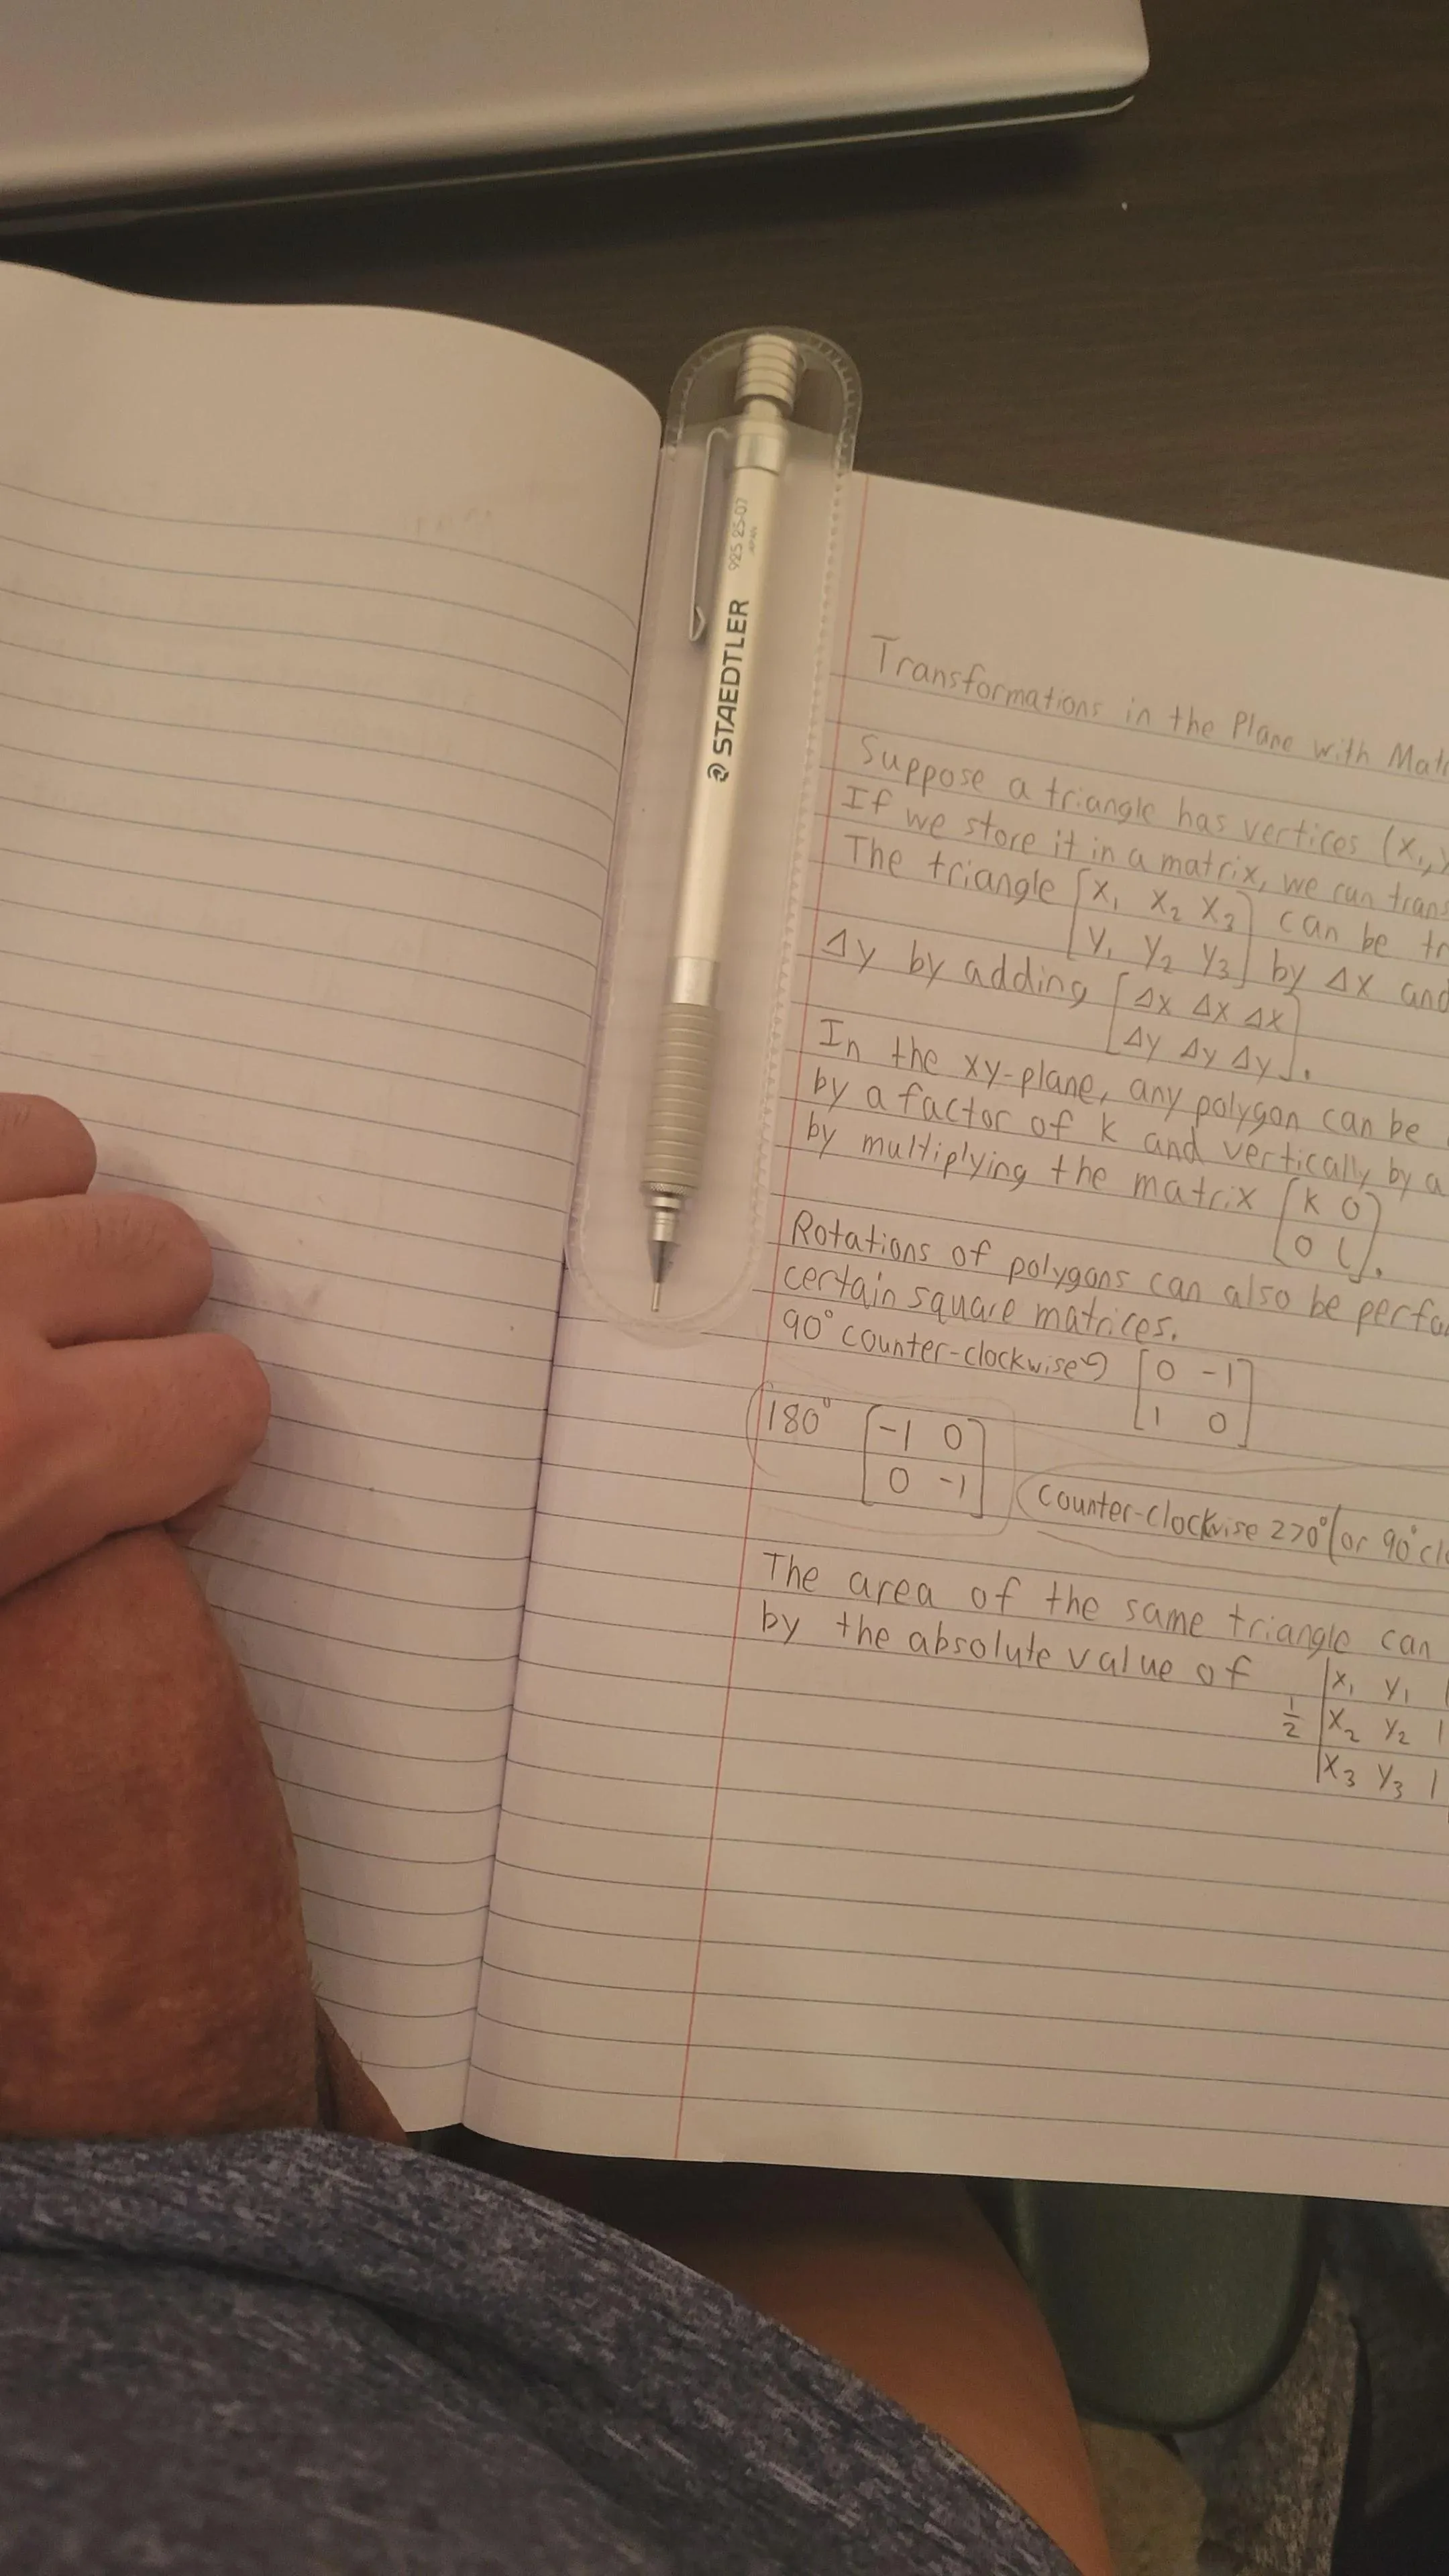 STAEDTLER 925 25-07
JAPAN
Transformations in the Plane with Mat
Suppose a triangle has vertices (x₁,
If we store it in a matrix, we can trans
The triangle [x₁ x₂ x₃] can be tr
[y₁ y₂ y₃] by Δx and
Δy by adding [Δx Δx Δx]
[Δy Δy Δy].
In the xy-plane, any polygon can be
by a factor of k and vertically by a
by multiplying the matrix [k 0]
[0 l].
Rotations of polygons can also be perfo
certain square matrices.
90° counter-clockwise↺ [0 -1]
[1 0]
180° [-1 0]
[0 -1]
counter-clockwise 270° (or 90° cl
The area of the same triangle can
by the absolute value of
½ |x₁ y₁ 1
|x₂ y₂ 1
|x₃ y₃ 1